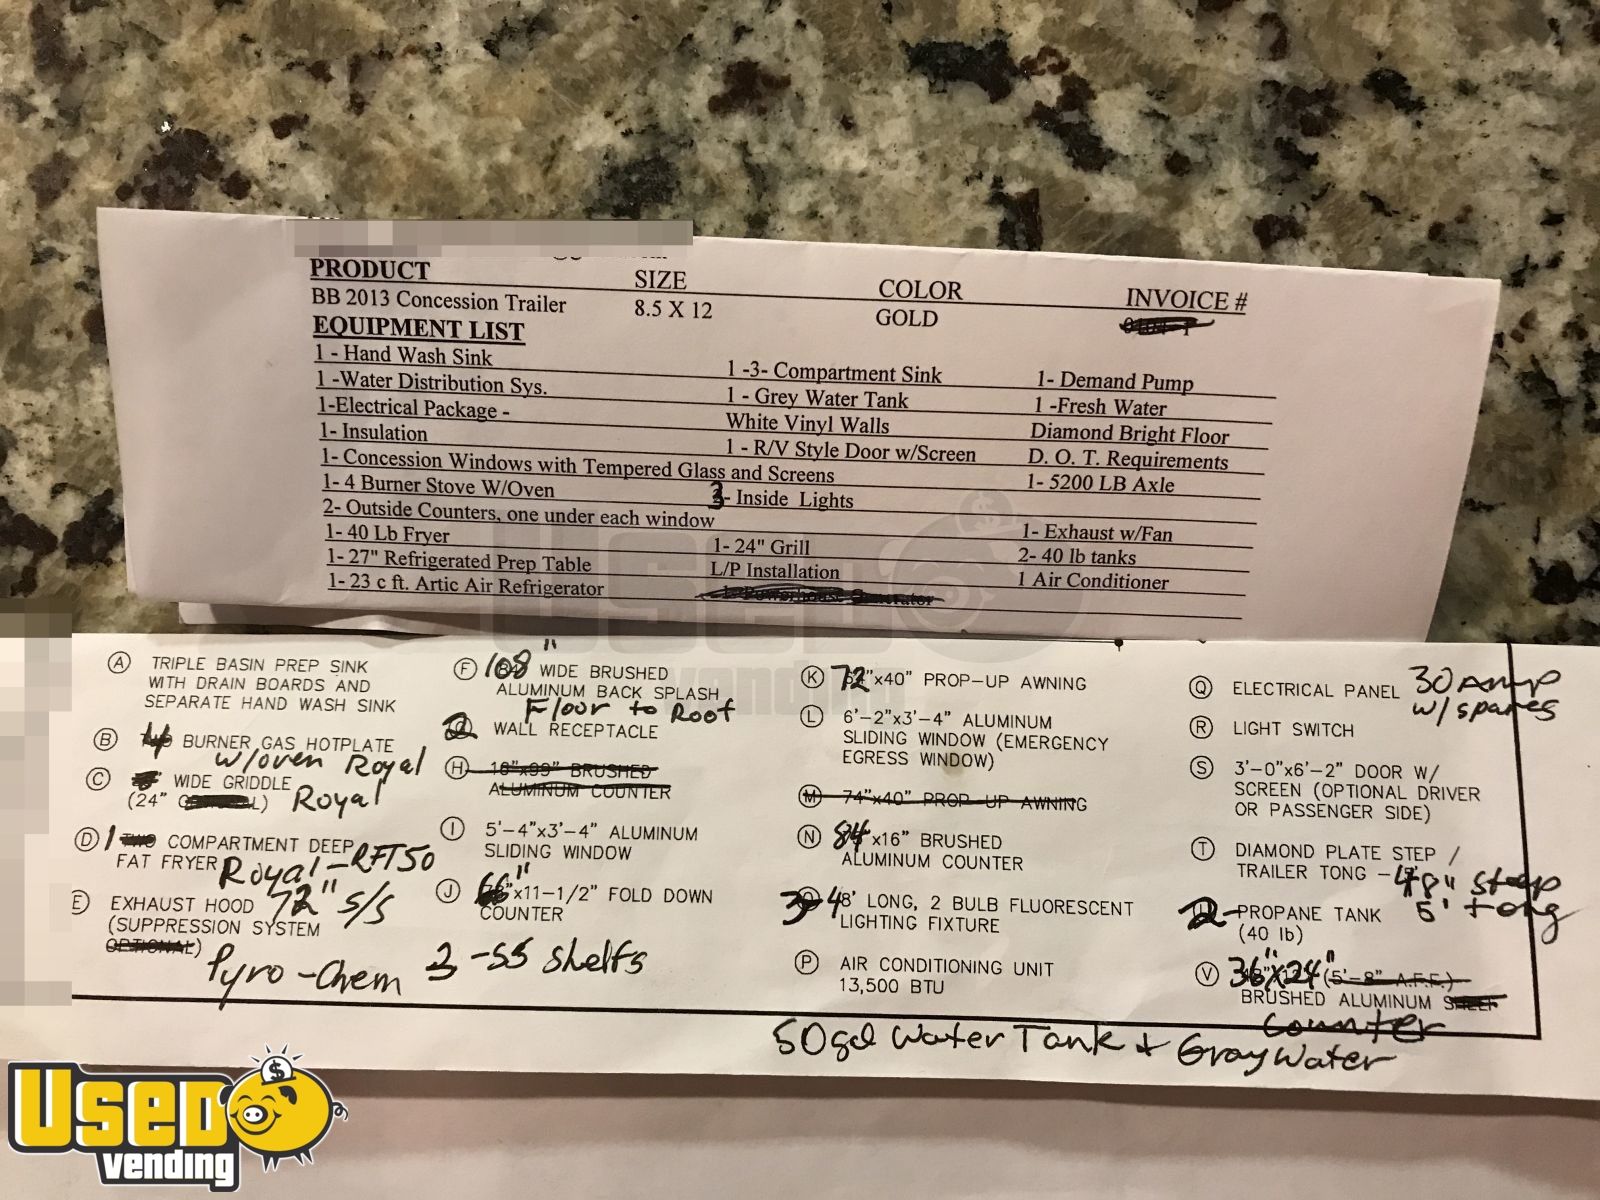 PRODUCT SIZE COLOR INVOICE #
BB 2013 Concession Trailer 8.5 X 12 GOLD
EQUIPMENT LIST
1 - Hand Wash Sink 1 -3- Compartment Sink 1- Demand Pump
1 -Water Distribution Sys. 1 - Grey Water Tank 1 -Fresh Water
1-Electrical Package - White Vinyl Walls Diamond Bright Floor
1- Insulation 1 - R/V Style Door w/Screen D. O. T. Requirements
1- Concession Windows with Tempered Glass and Screens 1- 5200 LB Axle
1- 4 Burner Stove W/Oven 3- Inside Lights
2- Outside Counters, one under each window 1- Exhaust w/Fan
1- 40 Lb Fryer 1- 24" Grill 2- 40 lb tanks
1- 27" Refrigerated Prep Table L/P Installation 1 Air Conditioner
1- 23 c ft. Artic Air Refrigerator 1- Powerhouse Generator
A TRIPLE BASIN PREP SINK
WITH DRAIN BOARDS AND
SEPARATE HAND WASH SINK
B 4 BURNER GAS HOTPLATE
w/oven Royal
C WIDE GRIDDLE
(24" L) Royal
D 1 TWO COMPARTMENT DEEP
FAT FRYER Royal-RFT50
E EXHAUST HOOD 72" S/S
(SUPPRESSION SYSTEM
OPTIONAL)
Pyro-Chem
F 108" WIDE BRUSHED
ALUMINUM BACK SPLASH
Floor to Roof
2 WALL RECEPTACLE
H 18"x99" BRUSHED
ALUMINUM COUNTER
I 5'-4"x3'-4" ALUMINUM
SLIDING WINDOW
J 66"x11-1/2" FOLD DOWN
COUNTER
3 -SS Shelfs
K 72"x40" PROP-UP AWNING
L 6'-2"x3'-4" ALUMINUM
SLIDING WINDOW (EMERGENCY
EGRESS WINDOW)
M 74"x40" PROP-UP AWNING
N 84x16" BRUSHED
ALUMINUM COUNTER
3-4 8' LONG, 2 BULB FLUORESCENT
LIGHTING FIXTURE
P AIR CONDITIONING UNIT
13,500 BTU
Q ELECTRICAL PANEL 30 Amp
w/spares
R LIGHT SWITCH
S 3'-0"x6'-2" DOOR W/
SCREEN (OPTIONAL DRIVER
OR PASSENGER SIDE)
T DIAMOND PLATE STEP /
TRAILER TONG - 48" Step
5' tong
2- PROPANE TANK
(40 lb)
V 36"x24" (5'-8" A.F.F.)
BRUSHED ALUMINUM SHELF
Counter
50gal Water Tank + Gray Water
USED
vending
USED
vending